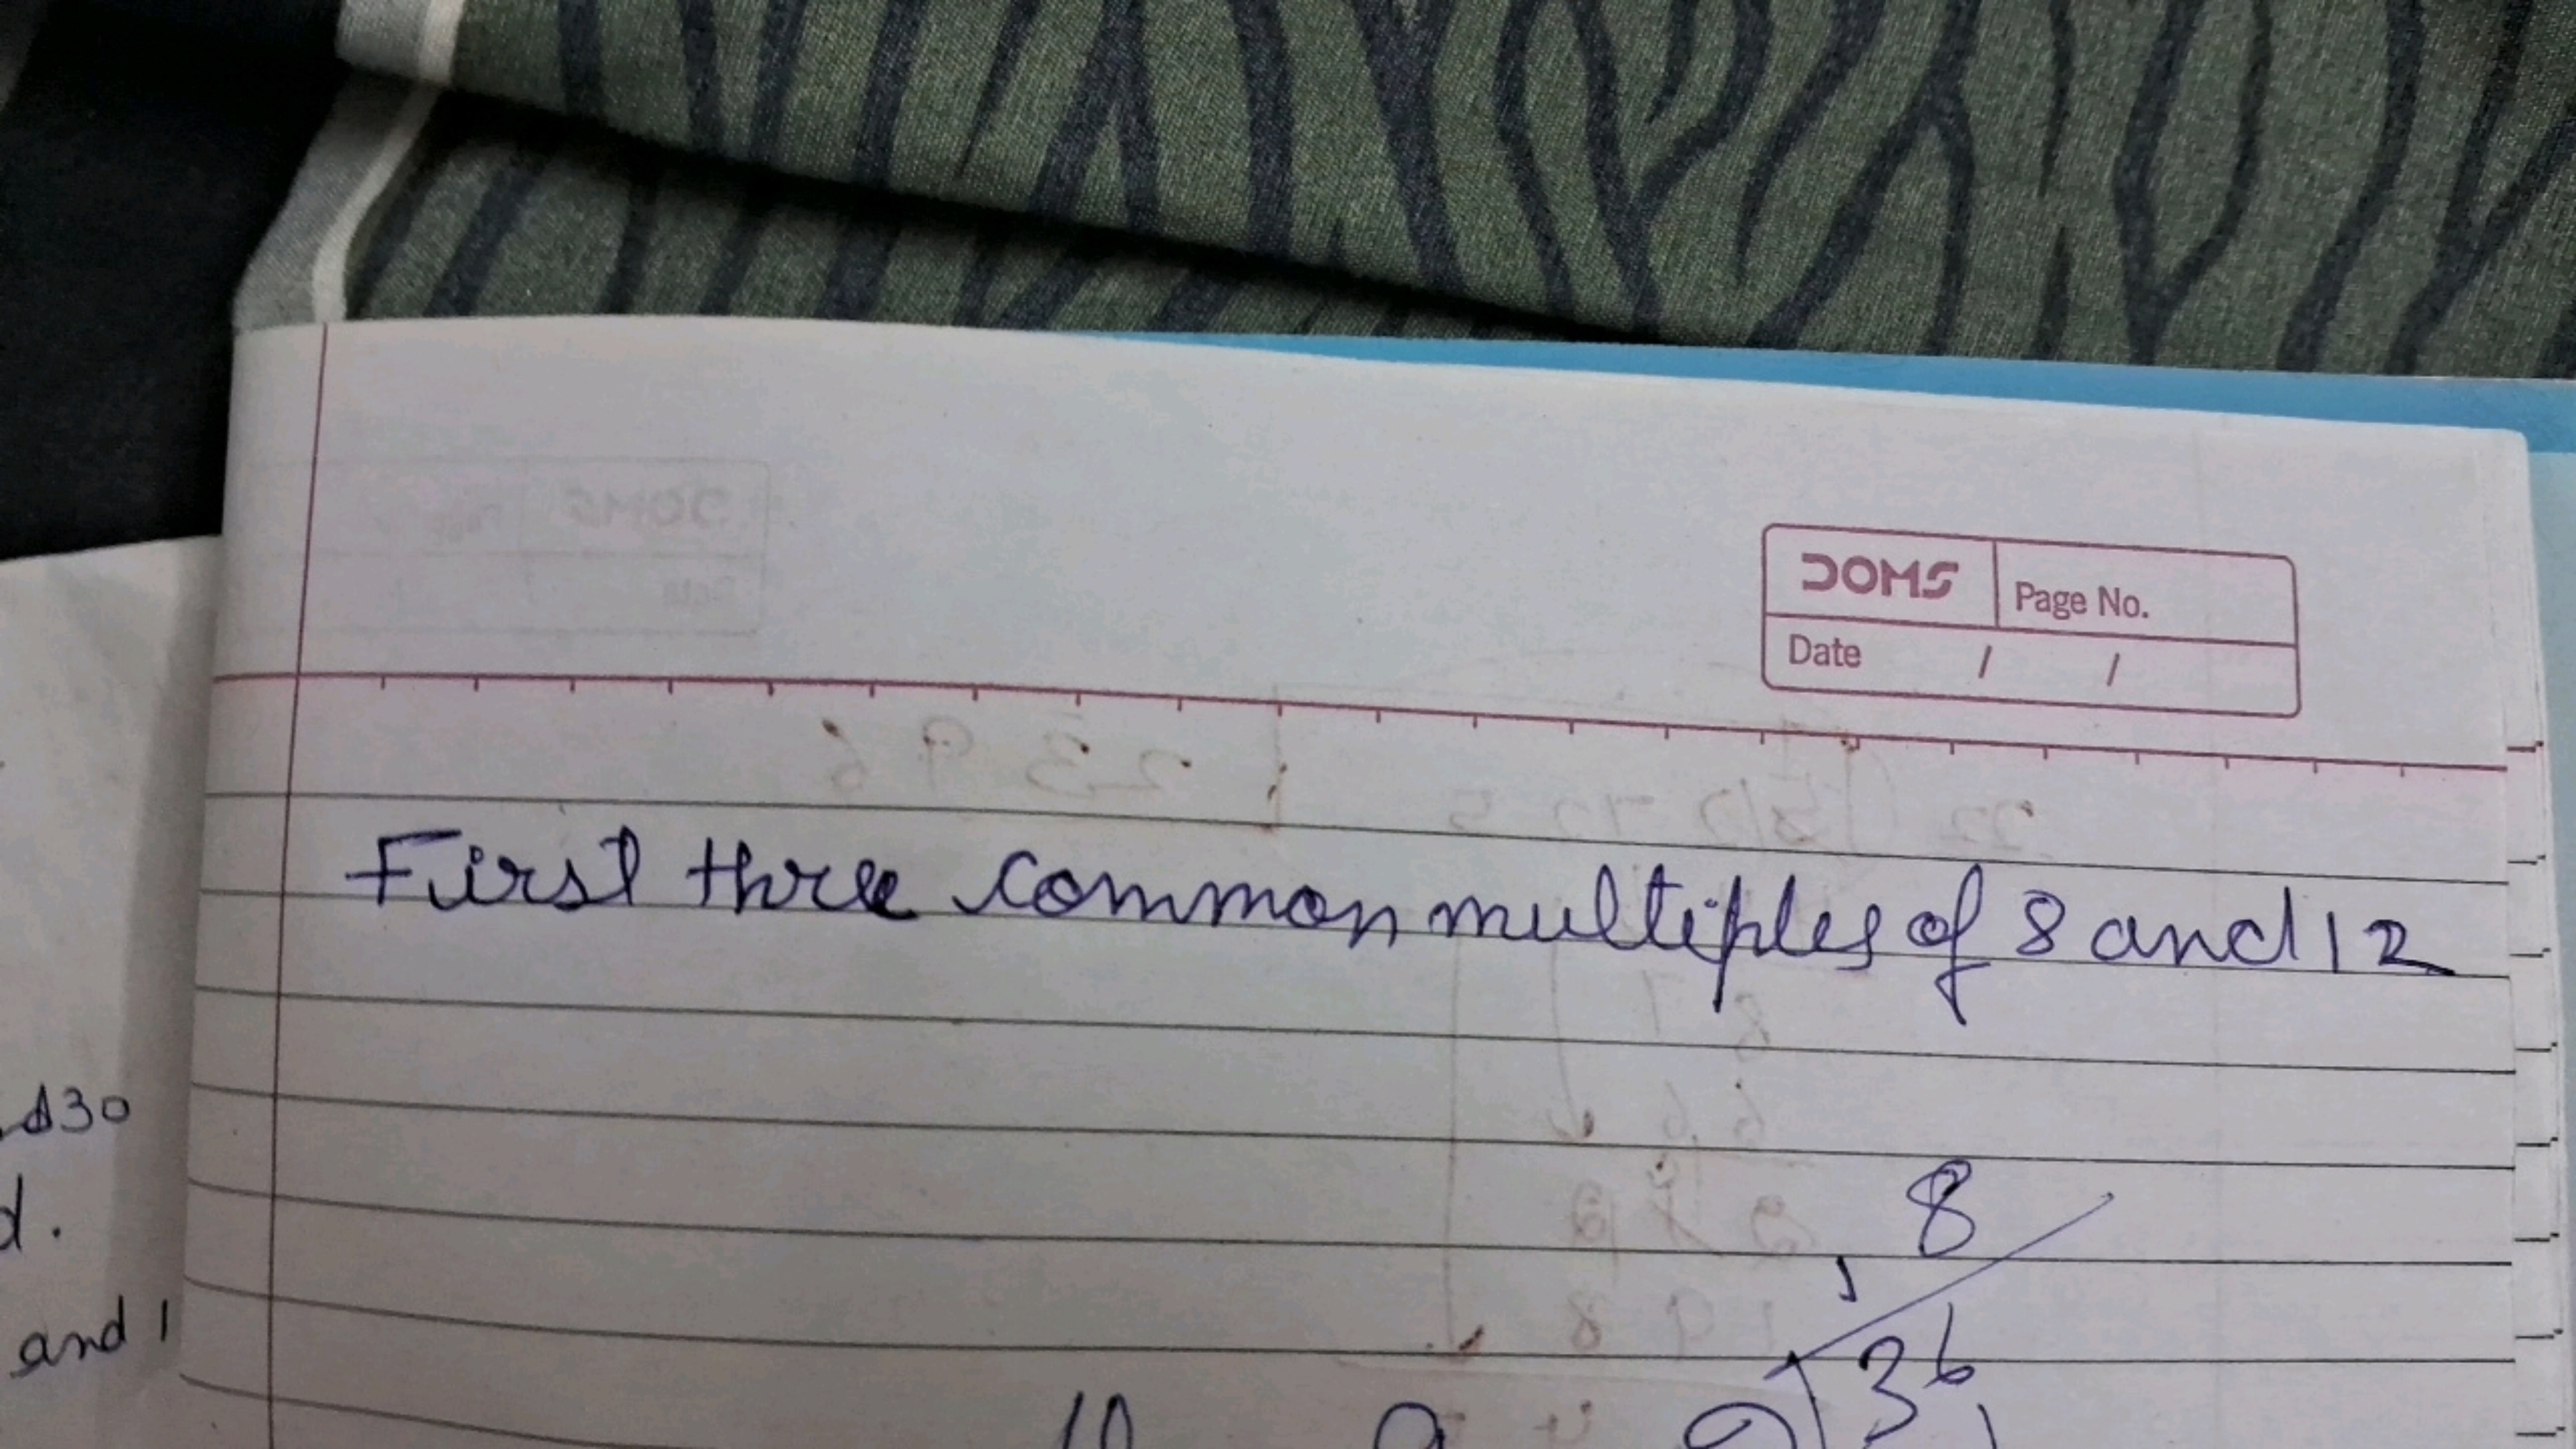 DOMS Page No.
Date / /
First three common multiples of 8 and 12
30
d.
and 1
8
36